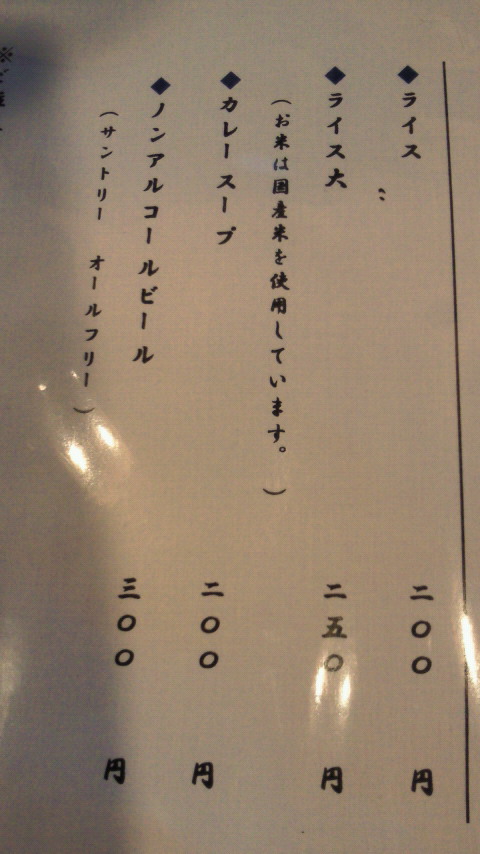 ◆ライス 二〇〇円
◆ライス大 二五〇円
(お米は国産米を使用しています。)
◆カレースープ 二〇〇円
◆ノンアルコールビール 三〇〇円
(サントリー オールフリー)